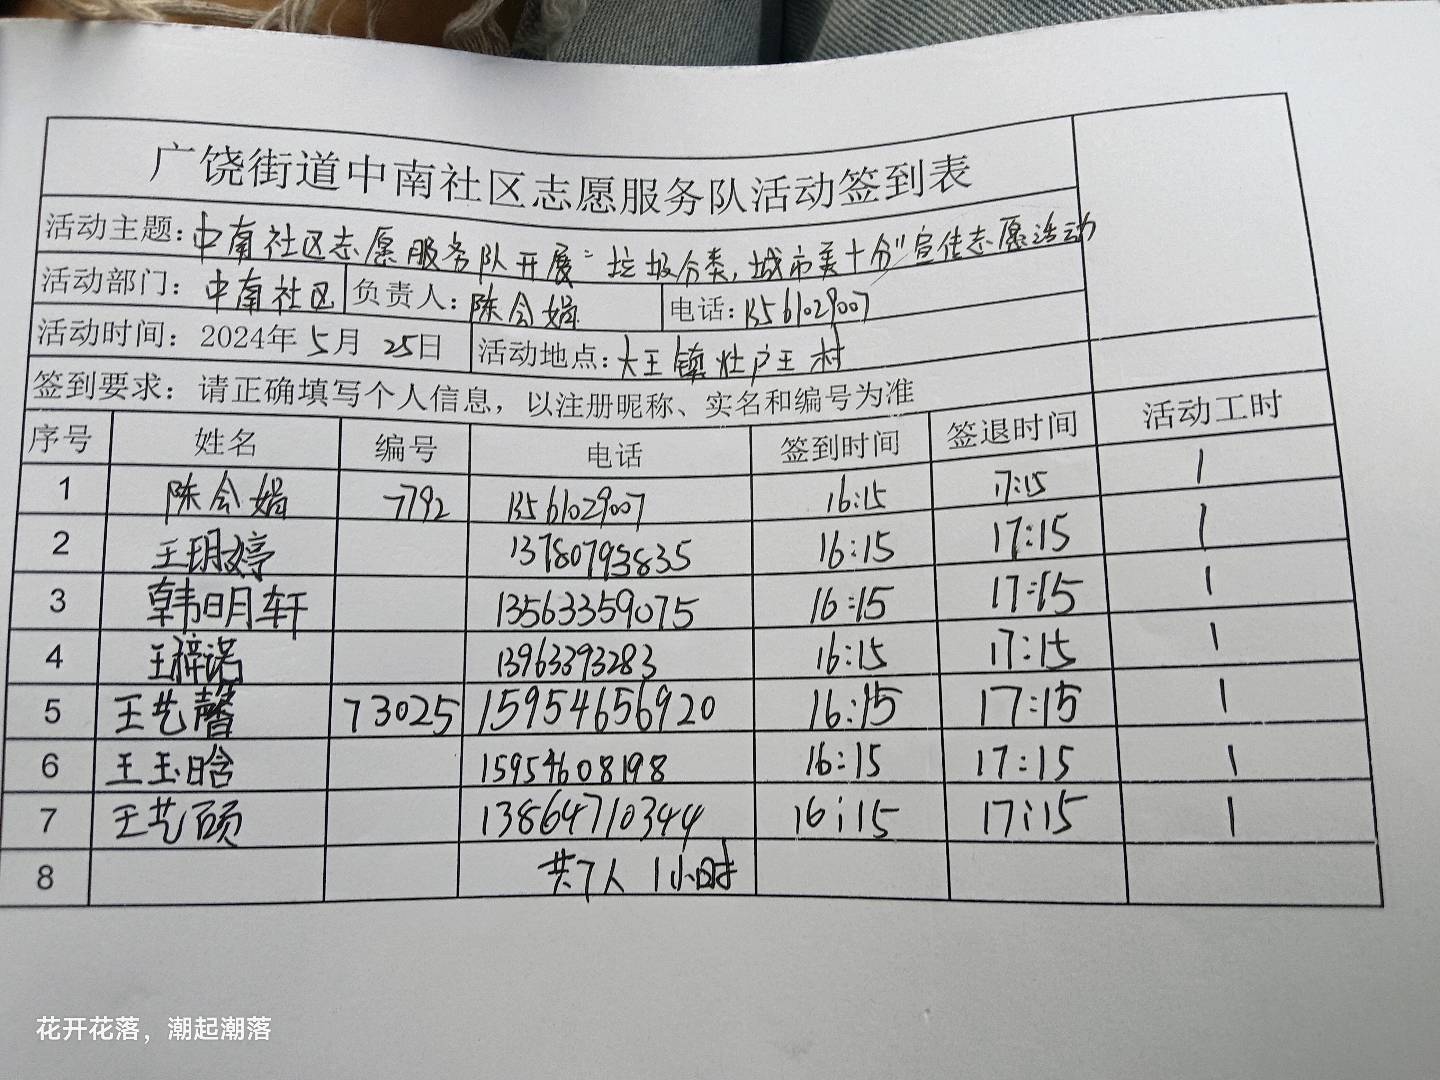 广饶街道中南社区志愿服务队活动签到表
活动主题：中南社区志愿服务队开展“垃圾分类，城市美十分”宣传志愿活动
活动部门：中南社区 负责人：陈会娟 电话：13561029007
活动时间：2024年5月25日 活动地点：大王镇灶户王村
签到要求：请正确填写个人信息，以注册昵称、实名和编号为准
序号 姓名 编号 电话 签到时间 签退时间 活动工时
1 陈会娟 7792 13561029007 16:15 17:15 1
2 王玥婷 13780793835 16:15 17:15 1
3 韩明轩 13563359075 16:15 17:15 1
4 王梓诺 13963393283 16:15 17:15 1
5 王艺馨 73025 15954656920 16:15 17:15 1
6 王玉晗 15954608198 16:15 17:15 1
7 王艺硕 13864710344 16:15 17:15 1
8 共7人 1小时
花开花落，潮起潮落